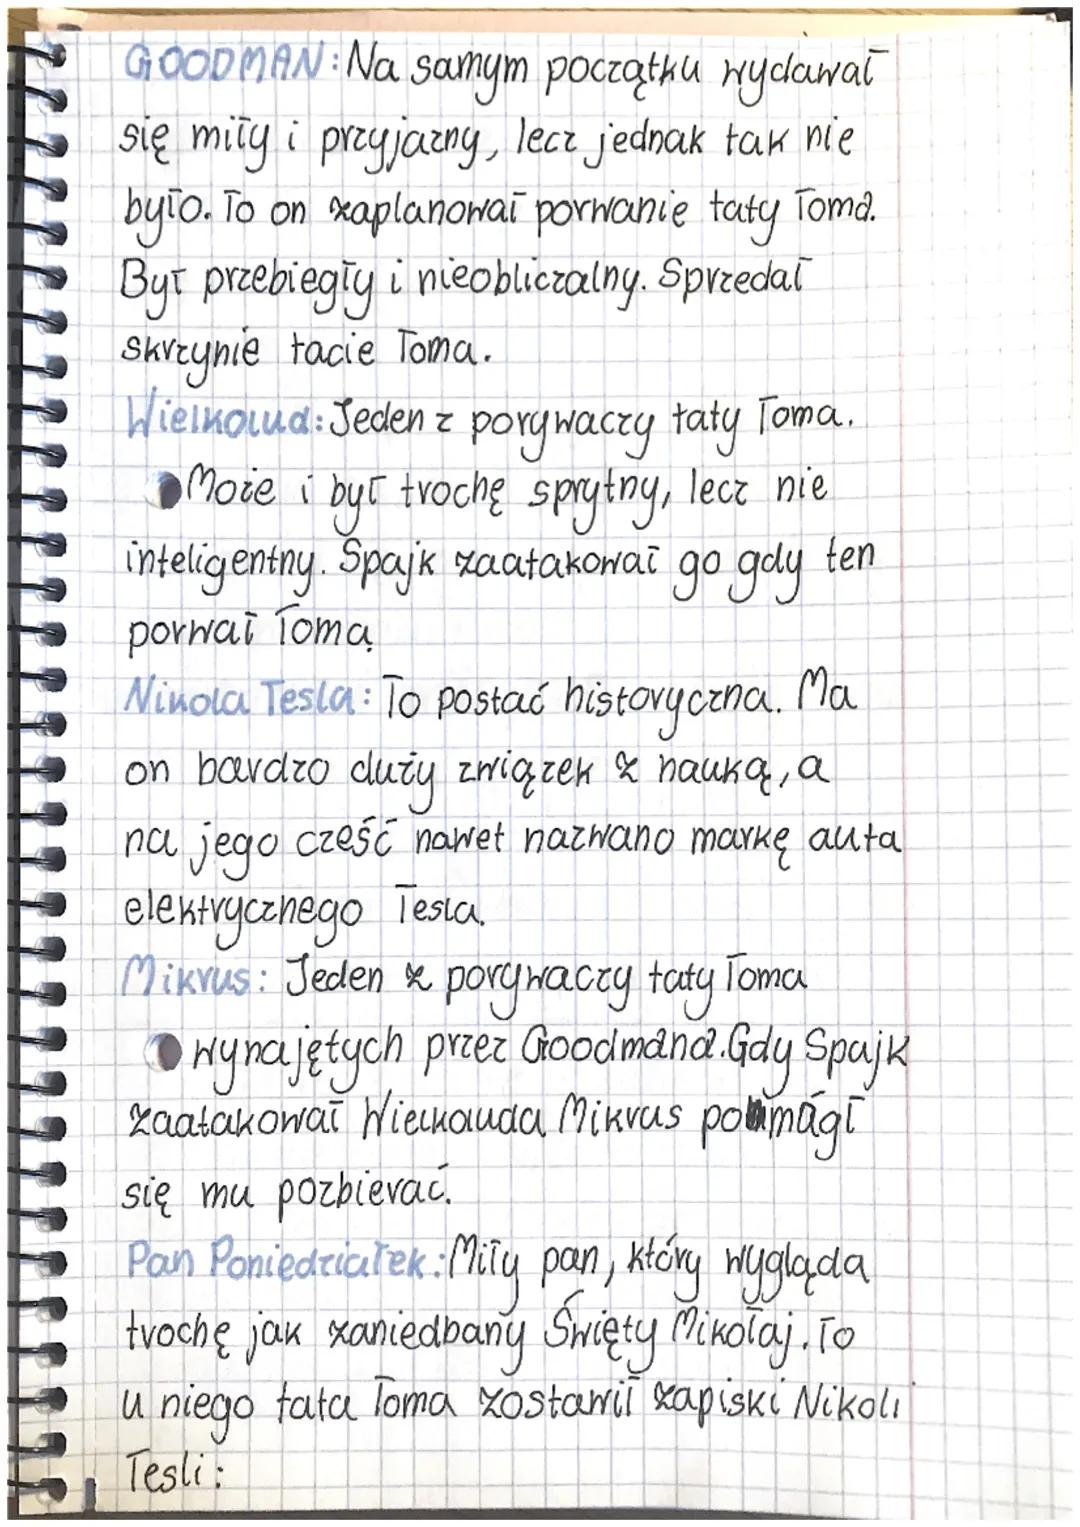 GOODMAN: Na samym początku wydawał
się miły i przyjazny, lecz jednak tak nie
było. To on zaplanował porwanie taty Toma.
Był przebiegły i nieobliczalny. Sprzedał
skrzynie tacie Toma.
Wielkolud: Jeden z porywaczy taty Toma.
Może i był trochę sprytny, lecz nie
inteligentny. Spajk zaatakował go gdy ten
porwał Toma
Nikola Tesla: To postać historyczna. Ma
on bardzo duży związek z nauką, a
na jego cześć nawet nazwano markę auta
elektrycznego Tesla.
Mikrus: Jeden z porywaczy taty Toma
wynajętych przez Goodmana. Gdy Spajk
zaatakował Wielkouda Mikrus pomógł
się mu pozbierać.
Pan Poniedziałek: Miły pan, który wygląda
trochę jak zaniedbany Święty Mikołaj. To
u niego tata Toma zostawił zapiski Nikoli
Tesli: